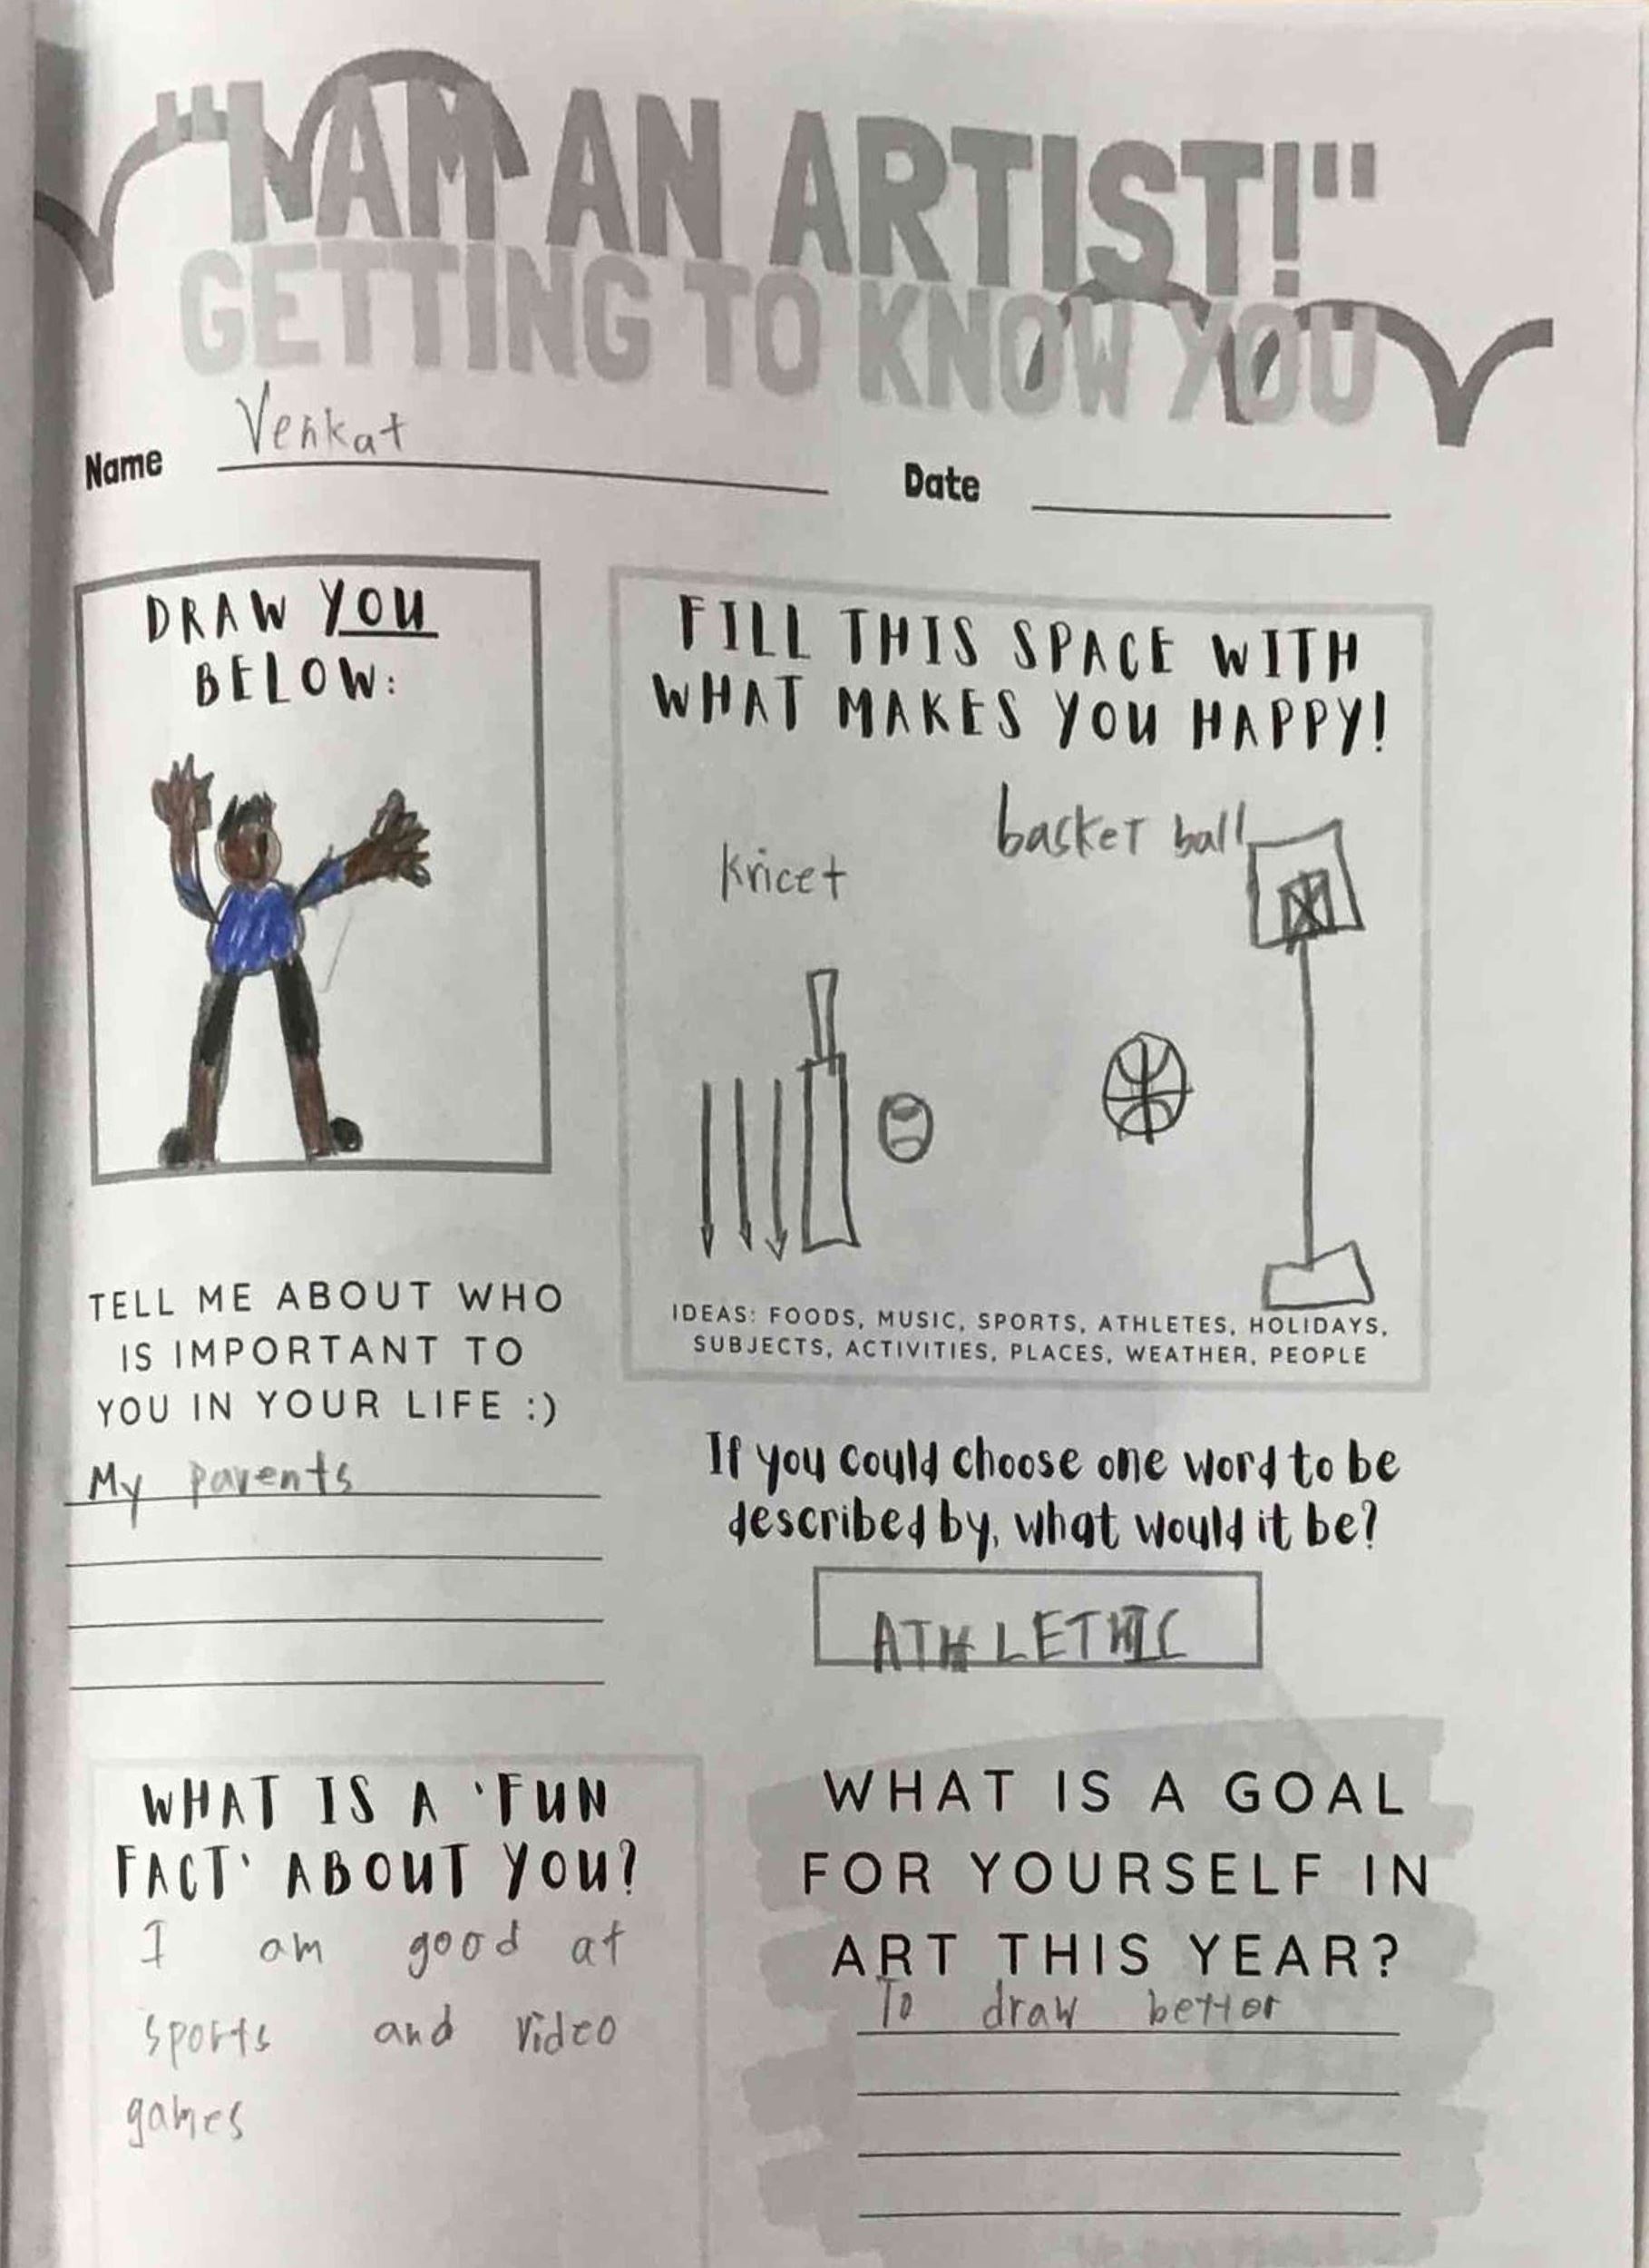 "I AM AN ARTIST!"
GETTING TO KNOW YOU
Name Venkat Date
DRAW YOU
BELOW:
FILL THIS SPACE WITH
WHAT MAKES YOU HAPPY!
kricet
basket ball
IDEAS: FOODS, MUSIC, SPORTS, ATHLETES, HOLIDAYS,
SUBJECTS, ACTIVITIES, PLACES, WEATHER, PEOPLE
TELL ME ABOUT WHO
IS IMPORTANT TO
YOU IN YOUR LIFE :)
My parents
If you could choose one word to be
described by, what would it be?
ATHLETHIC
WHAT IS A 'FUN
FACT' ABOUT YOU?
I am good at
sports and video
games
WHAT IS A GOAL
FOR YOURSELF IN
ART THIS YEAR?
To draw better